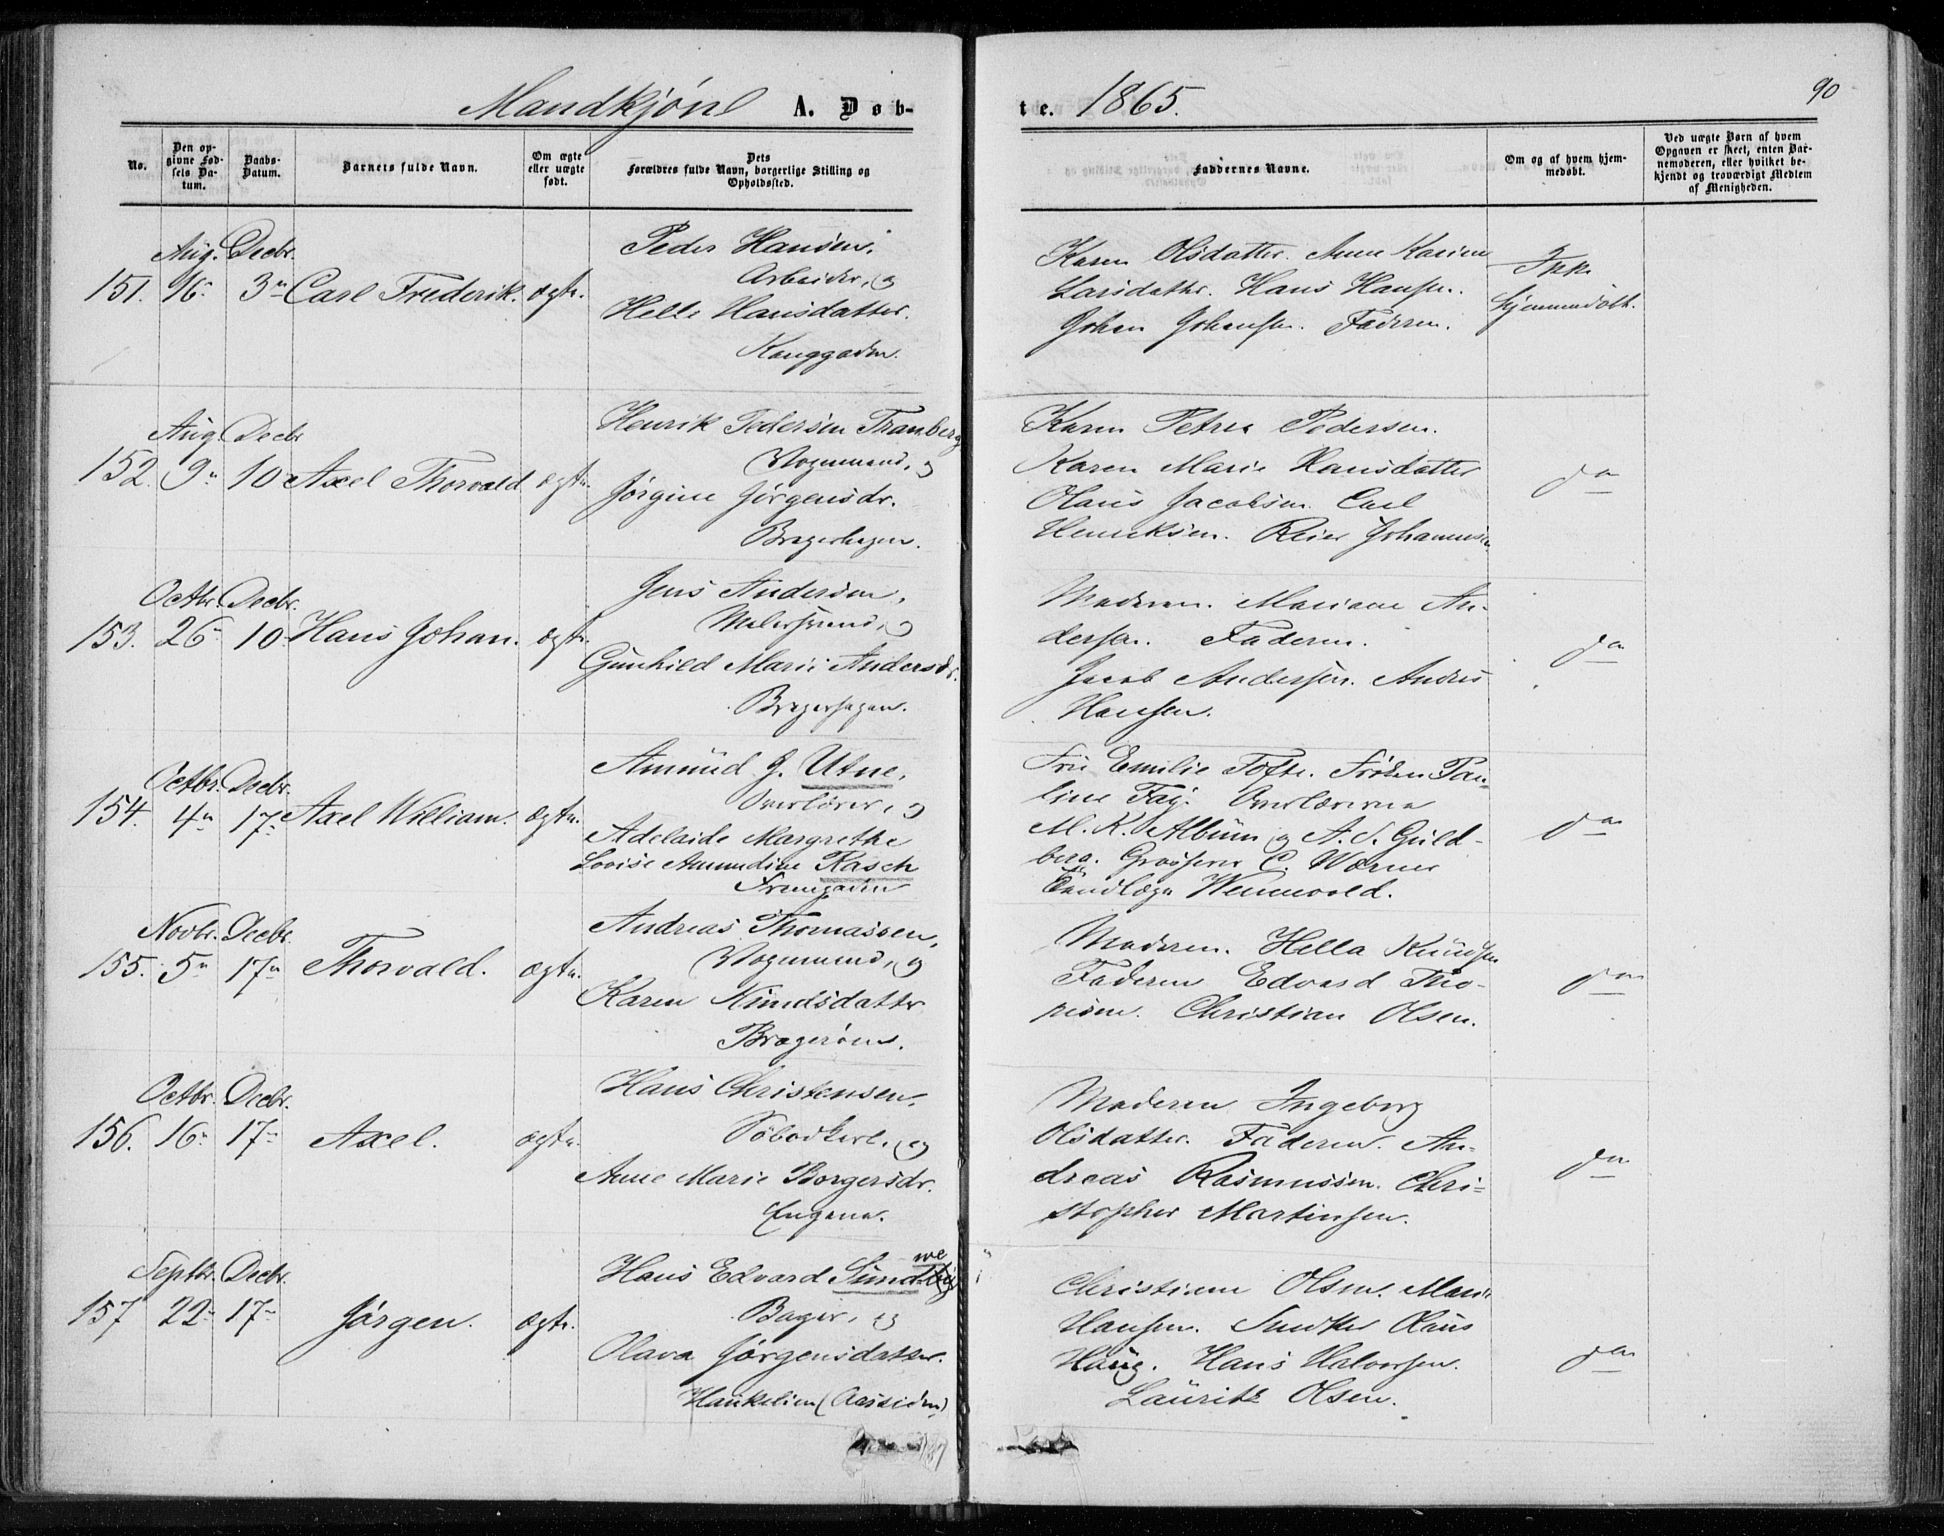 Mandkjøn A. Døb-
te. 1865.
90
No.
Den opgivne Fødsels Datum.
Daabs-Datum.
Barnets fulde Navn.
Om ægte eller uægte født.
Dets Forældres fulde Navn, borgerlige Stilling og Opholdssted.
Faddernes Navne.
Om og af hvem hjemmedøbt.
Ved uægte Børn af hvem Opgaven er skeet, enten Barnemoderen, eller hvilket bekjendt og troværdigt Medlem af Menigheden.
Aug. Decbr.
151. 16 3 Carl Frederik. ægte.
Peder Hansen,
Arbeider, og
Helle Hansdatter.
Konggaden.
Karen Olsdatter. Anne Karine
Larsdatter. Hans Hansen.
Johan Johansen. Faderen.
Ikke
hjemmedøbt.
Aug. Decbr
152. 9 10 Axel Thorvald ægte.
Henrik Pedersen Tranberg
Vognmand, og
Jørgine Jørgensdr.
Bragerhagen.
Karen Petrea Pedersen.
Karen Marie Hansdatter
Olaus Jacobsen Carl
Henriksen. Reier Johannesen
do
Octbr. Decbr.
153. 26 10 Hans Johan. ægte.
Jens Andersen,
Malersvend, og
Gunhild Marie Andersdr.
Bragerhagen.
Moderen. Mariane An-
dersen. Faderen.
Jacob Andersen. Andreas
Hansen.
do
Octbr. Decbr.
154. 4 17 Axel William. ægte.
Amund J. Utne,
Overlærer, og
Adelaide Margrethe
Lovise Amundine Rasch
Fru Emilie Tofte. Frøken Pau-
line Fay. Overlærerne
M. K. Album og A. S. Guld-
berg. Grosserer C. Wærner
Tandlæge Wennevold.
do
Novbr. Decbr.
155. 5 17 Thorvald. ægte.
Andreas Thomassen,
Vognmand, og
Karen Knudsdatter
Bragernes.
Moderen. Hella Knudsen
Faderen Edvard Tho-
resen. Christian Olsen.
do
Octbr. Decbr.
156. 16 17 Axel. ægte.
Hans Christensen,
og
Anne Marie Borgersdr.
Engene.
Moderen Ingeborg
Olsdatter. Faderen. An-
dreas Rasmussen. Chri-
stopher Martinsen.
do
Septbr. Decbr.
157 22 17 Jørgen. ægte.
Hans Edvard Sundby
Bager, og
Olava Jørgensdatter.
Haukelien
Christiane Olsen. Marie
Hansen. Snedker Claus
Haug. Hans Halvorsen.
Lauritz Olsen.
do